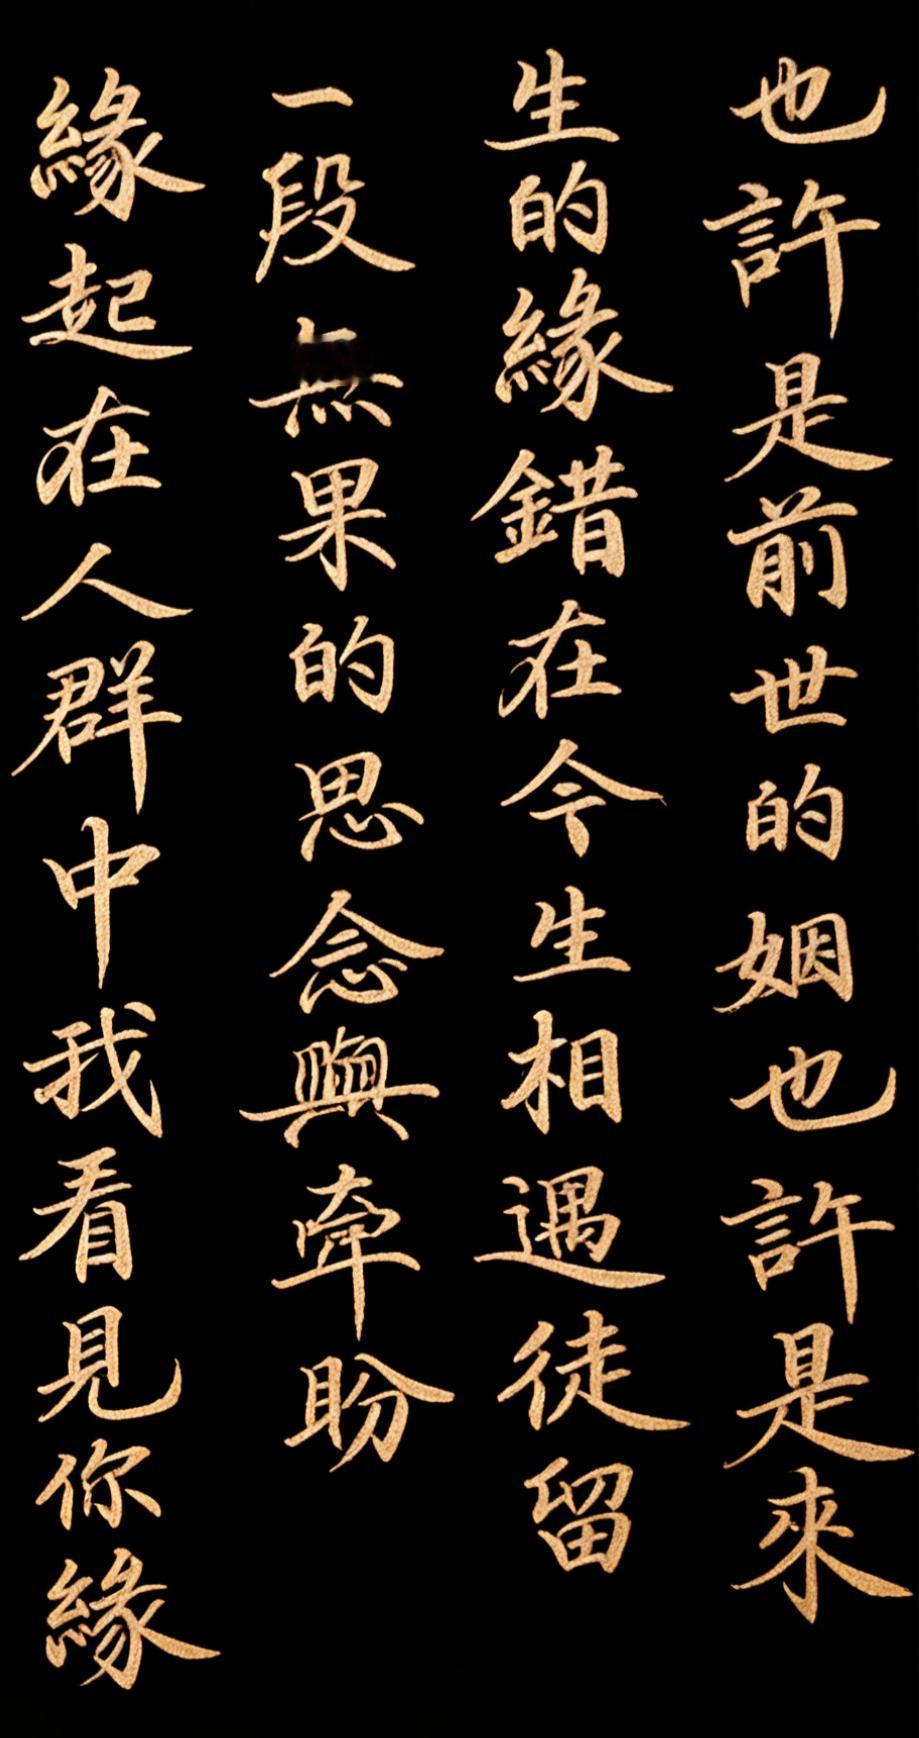 也許是前世的姻也許是來
生的緣錯在今生相遇徒留
一段無果的思念與牽盼
緣起在人群中我看見你緣